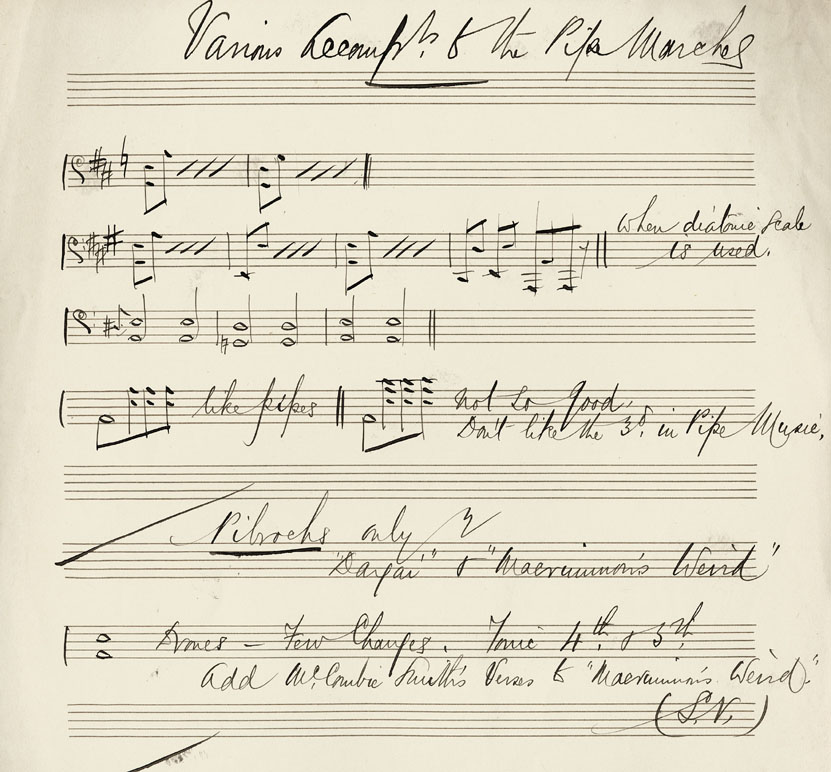 Various Accompts. to the Pipe Marches
When diatonic Scale
is used.
like pipes
Not so good.
Don't like the 3d. in Pipe Music.
Pibrochs only
"Dargai" & "Macrimmon's Weird"
Drones – Few Changes. Tonic 4th & 5th
Add McCombie Smith's Verses to "Macrimmon's Weird."
(S.N.)